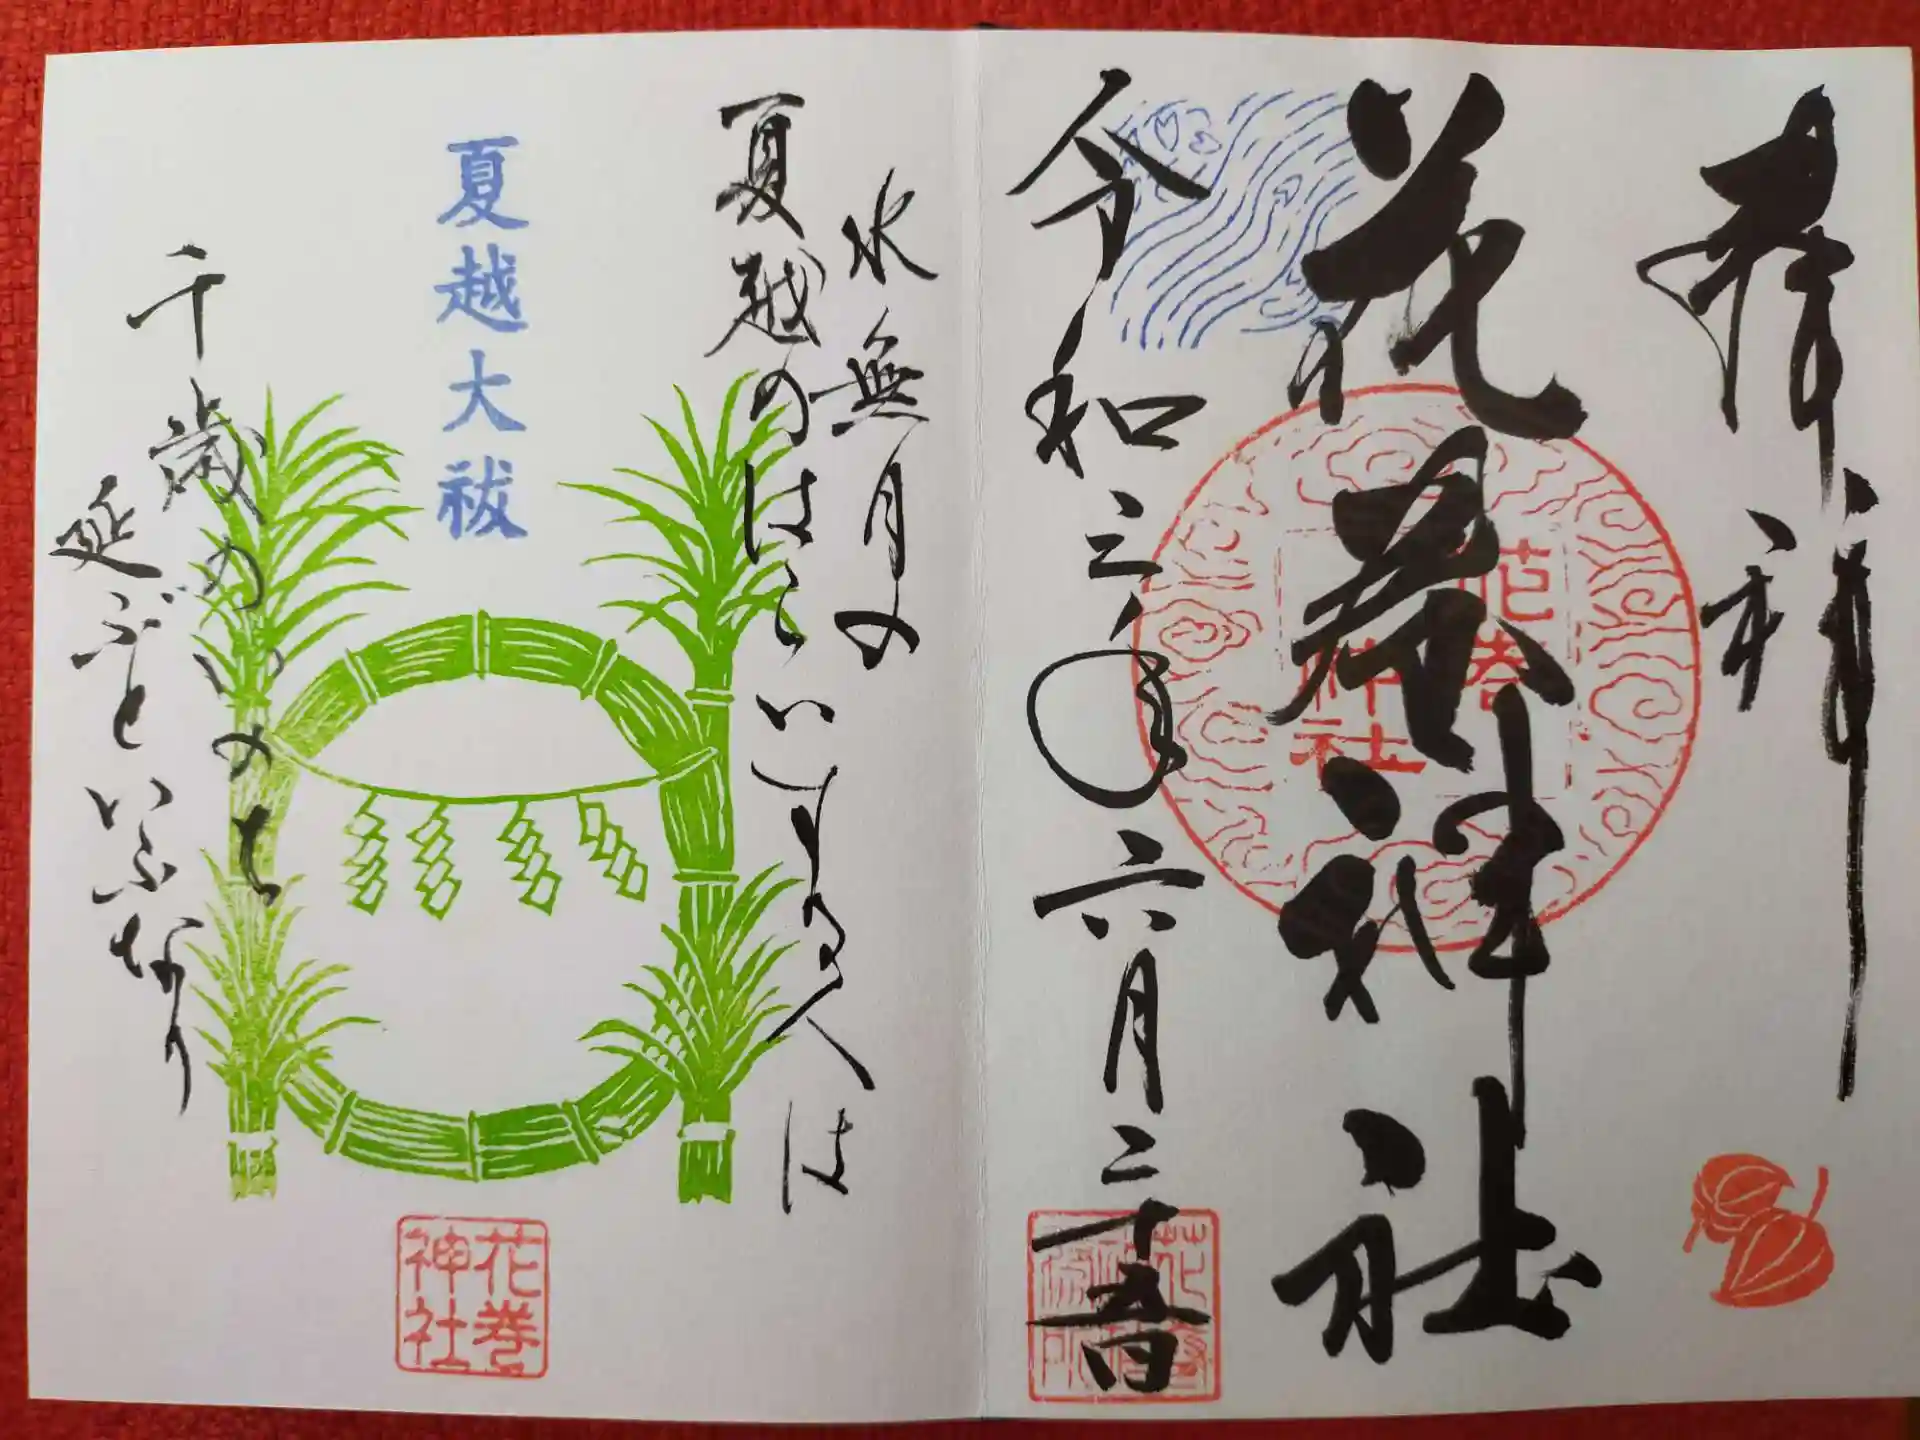 奉拝
花巻神社
花巻
神社
令和三年六月二十五日
水無月の
夏越のはらいする人は
夏越大祓
千歳のいのち
延ぶといふなり
花巻
神社